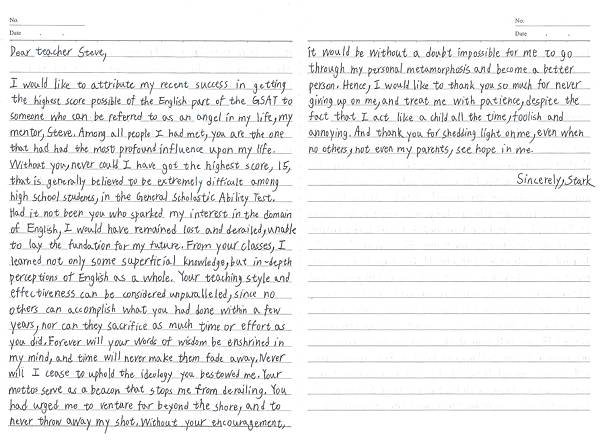 No.
Date . .
Dear teacher Steve,
I would like to attribute my recent success in getting
the highest score possible of the English part of the GSAT to
someone who can be referred to as an angel in my life, my
mentor, Steve. Among all people I had met, you are the one
that had had the most profound influence upon my life.
Without you, never could I have got the highest score, 15,
that is generally believed to be extremely difficult among
high school studens, in the General Scholastic Ability Test.
Had it not been you who sparked my interest in the domain
of English, I would have remained lost and derailed, unable
to lay the fundation for my future. From your classes, I
learned not only some superficial knowledge, but in-depth
perceptions of English as a whole. Your teaching style and
effectiveness can be considered unparalleled, since no
others can accomplish what you had done within a few
years, nor can they sacrifice as much time or effort as
you did. Forever will your words of wisdom be enshrined in
my mind, and time will never make them fade away. Never
will I cease to uphold the ideology you bestowed me. Your
mottos serve as a beacon that stops me from derailing. You
had urged me to venture far beyond the shore, and to
never throw away my shot. Without your encouragement,
No.
Date . .
it would be without a doubt impossible for me to go
through my personal metamorphosis and become a better
person. Hence, I would like to thank you so much for never
giving up on me, and treat me with patience, despite the
fact that I act like a child all the time, foolish and
annoying. And thank you for shedding light on me, even when
no others, not even my parents, see hope in me.
Sincerely, Stark